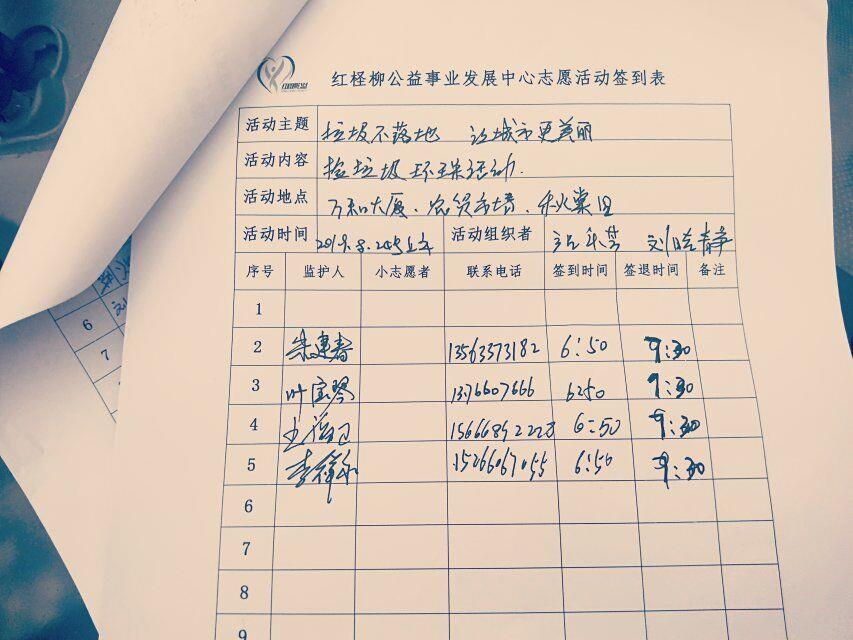 红柽柳公益事业发展中心志愿活动签到表
活动主题 垃圾不落地 让城市更美丽
活动内容 捡垃圾环保活动.
活动地点 万和大厦、
活动时间 2019.8.24 活动组织者 刘晓静
序号 监护人 小志愿者 联系电话 签到时间 签退时间 备注
1
2 朱建春 13563373182 6:50 9:30
3 叶宝琴 1376607666 6:50 9:30
4 15666892228 6:50 9:30
5 李祥永 15266067055 6:50 9:30
6
7
8
9
6
7